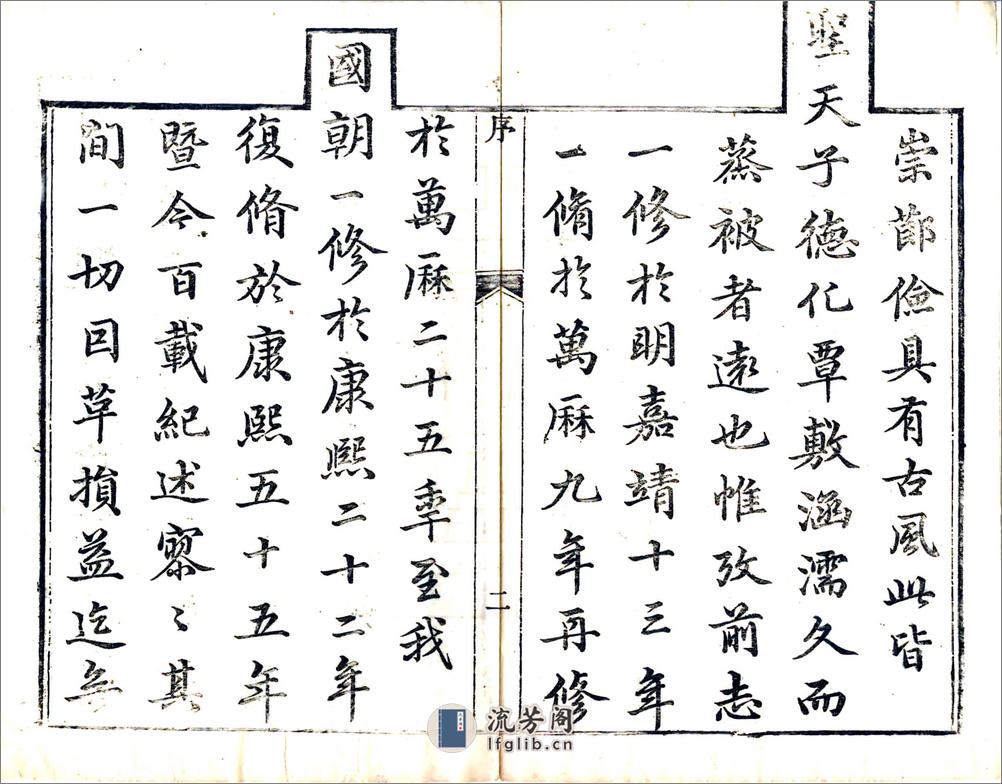 崇節儉具有古風此皆
聖天子德化覃敷涵濡久而
蒸被者遠也惟攷前志
一修於明嘉靖十三年
一脩於萬厤九年再修
序
二
於萬厤二十五秊至我
國朝一修於康熙二十二年
復脩於康熙五十五年
暨今百載紀述寥〻其
間一切因革損益迄無
流芳阁
lfglib.cn